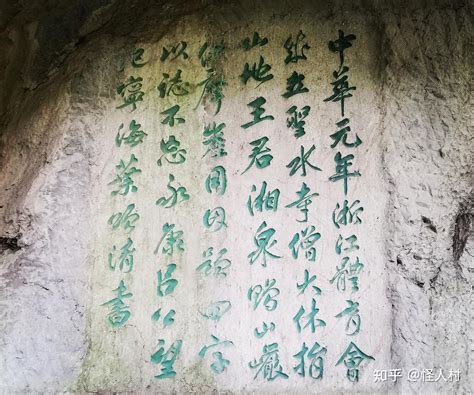 中華元年浙江體育會
成立聖水寺僧大休捐
山地王君湘泉贈山巖
摩崖用因題四字
以誌不忘永康呂公望
記寧海葉頌清書
知乎 @怪人村